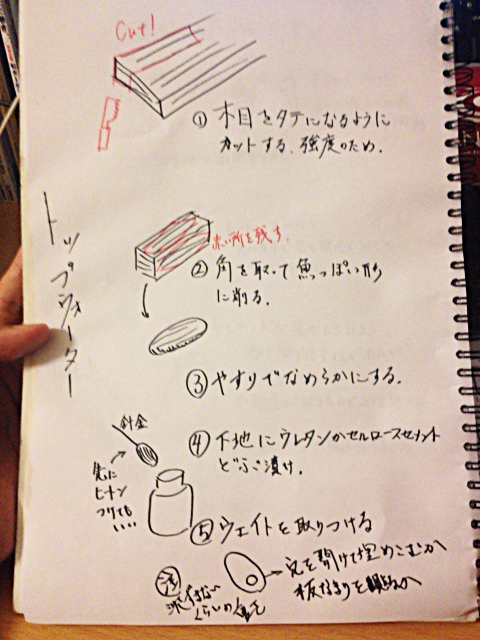 Cut!
① 木目をタテになるように
カットする、強度のため.
トップウォーター
赤い所を残す.
② 角を取って魚っぽい形
に削る.
③ やすりでなめらかにする.
④ 下地にウレタンかセルロースセメント
どぶ漬け.
針金
先に
ヒートン
つけても
いい
⑤ ウェイトを取りつける
穴を開けて埋めこむか
板なまりを
くらいの